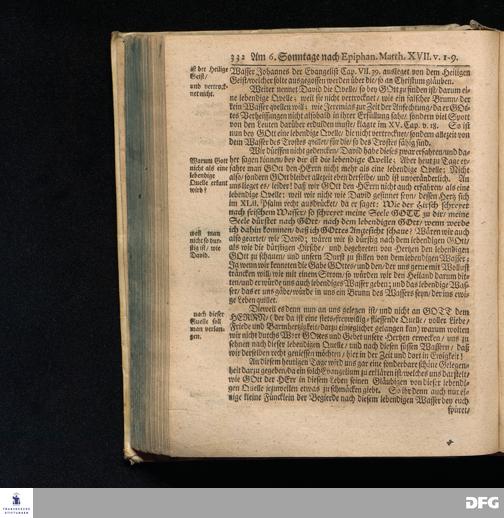 332 Am 6. Sonntage nach Epiphan. Matth. XVII. v. 1-9.
ist der Heilige Geist/
und vertrock-
net nicht.
Warum Gott
nicht als eine
lebendige
Quelle erkant
wird?
weil man
nicht so dur-
stig ist/ wie
David.
nach dieser
Quelle soll
man verlan-
gen.
Wasser Johannes der Evangelist Cap. VII. 39. ausleget von dem Heiligen
Geist/ welcher solte ausgegossen werden über die/ so an Christum gläuben.
Weiter nennet David die Qvelle/ so bey GOtt zu finden ist/ darum ei-
ne lebendige Qvelle; weil sie nicht vertrocknet/ wie ein falscher Brunn/ der
dem Wasser qvellen will: wie Jeremias zur Zeit der Anfechtung/ da er GOt-
tes Verheissungen nicht alsobald in ihrer Erfüllung sahe/ sondern viel Spott
von den Leuten darüber erdulden muste/ klagte im XV. Cap. v. 18. So ist
nun bey GOtt eine lebendige Qvelle/ die nicht vertrocknet/ sondern allezeit von
dem Wasser des Trostes qvellen/ für die/ so des Trostes fähig sind.
Wir dürffen nicht gedencken/ David habe dieses zwar erfahren/ und da-
her sagen können/ bey dir ist die lebendige Qvelle: Aber heut zu Tage er-
fahre man GOtt den HErrn nicht mehr als eine lebendige Qvelle: Nicht
also/ sondern GOtt bleibet allezeit eben derselbe/ und ist unveränderlich. An
uns lieget es/ leider! daß wir GOtt den HErrn nicht auch erfahren/ als eine
lebendige Qvelle: weil wir nicht wie David gesinnet seyn/ dessen Hertz sich
im XLII. Psalm recht ausdruckt/ da er saget: Wie der Hirsch schreyet
nach frischem Wasser/ so schreyet meine Seele GOTT zu dir/ meine
Seele dürstet nach GOtt/ nach dem lebendigen GOtt/ wenn werde
ich dahin kommen/ daß ich GOttes Angesicht schaue? Wären wir auch
also geartet/ wie David; wären wir so dürstig nach dem lebendigen GOtt/
als wie die dürstigen Hirsche/ und begehreten von Hertzen den lebendigen
GOtt zu schauen/ und unsern Durst zu stillen von dem lebendigen Wasser:
Ja wenn wir kenneten die Gabe GOttes/ und den/ der uns gerne mit Wollust
träncken will/ wie mit einem Strom/ so würden wir den Heiland darum bit-
ten/ und er würde uns auch lebendiges Wasser geben; und das lebendige Was-
ser/ das er uns gäbe/ würde in uns ein Brunn des Wassers seyn/ der ins ewi-
ge Leben qvillet.
Dieweil es denn nun an uns gelegen ist/ und nicht an GOTT dem
HERRN/ (der da ist eine stets-freywillig-fliessende Qvelle/ voller Liebe/
Friede und Barmhertzigkeit/ dazu ein jeglicher gelangen kan) warum wolten
wir nicht durchs Wort GOttes und Gebet unsere Hertzen erwecken/ uns zu
sehnen nach dieser lebendigen Qvelle/ und nach diesen süssen Wassern/ daß
wir derselben recht geniessen möchten/ hier in der Zeit und dort in Ewigkeit!
An diesem heutigen Tage wird uns gar eine sonderbare schöne Gelegen-
heit dazu gegeben/ da ein solch Evangelium zu erklären ist/ welches uns darstellt/
wie GOtt der HErr in diesem Leben seinen Gläubigen von dieser lebendi-
gen Qvelle jezuweilen etwas zu schmäcken giebt. So ihr denn auch nur ei-
nige kleine Füncklein der Begierde nach diesem lebendigen Wasser bey euch
spüret/
FRANCKESCHE
STIFTUNGEN
DFG